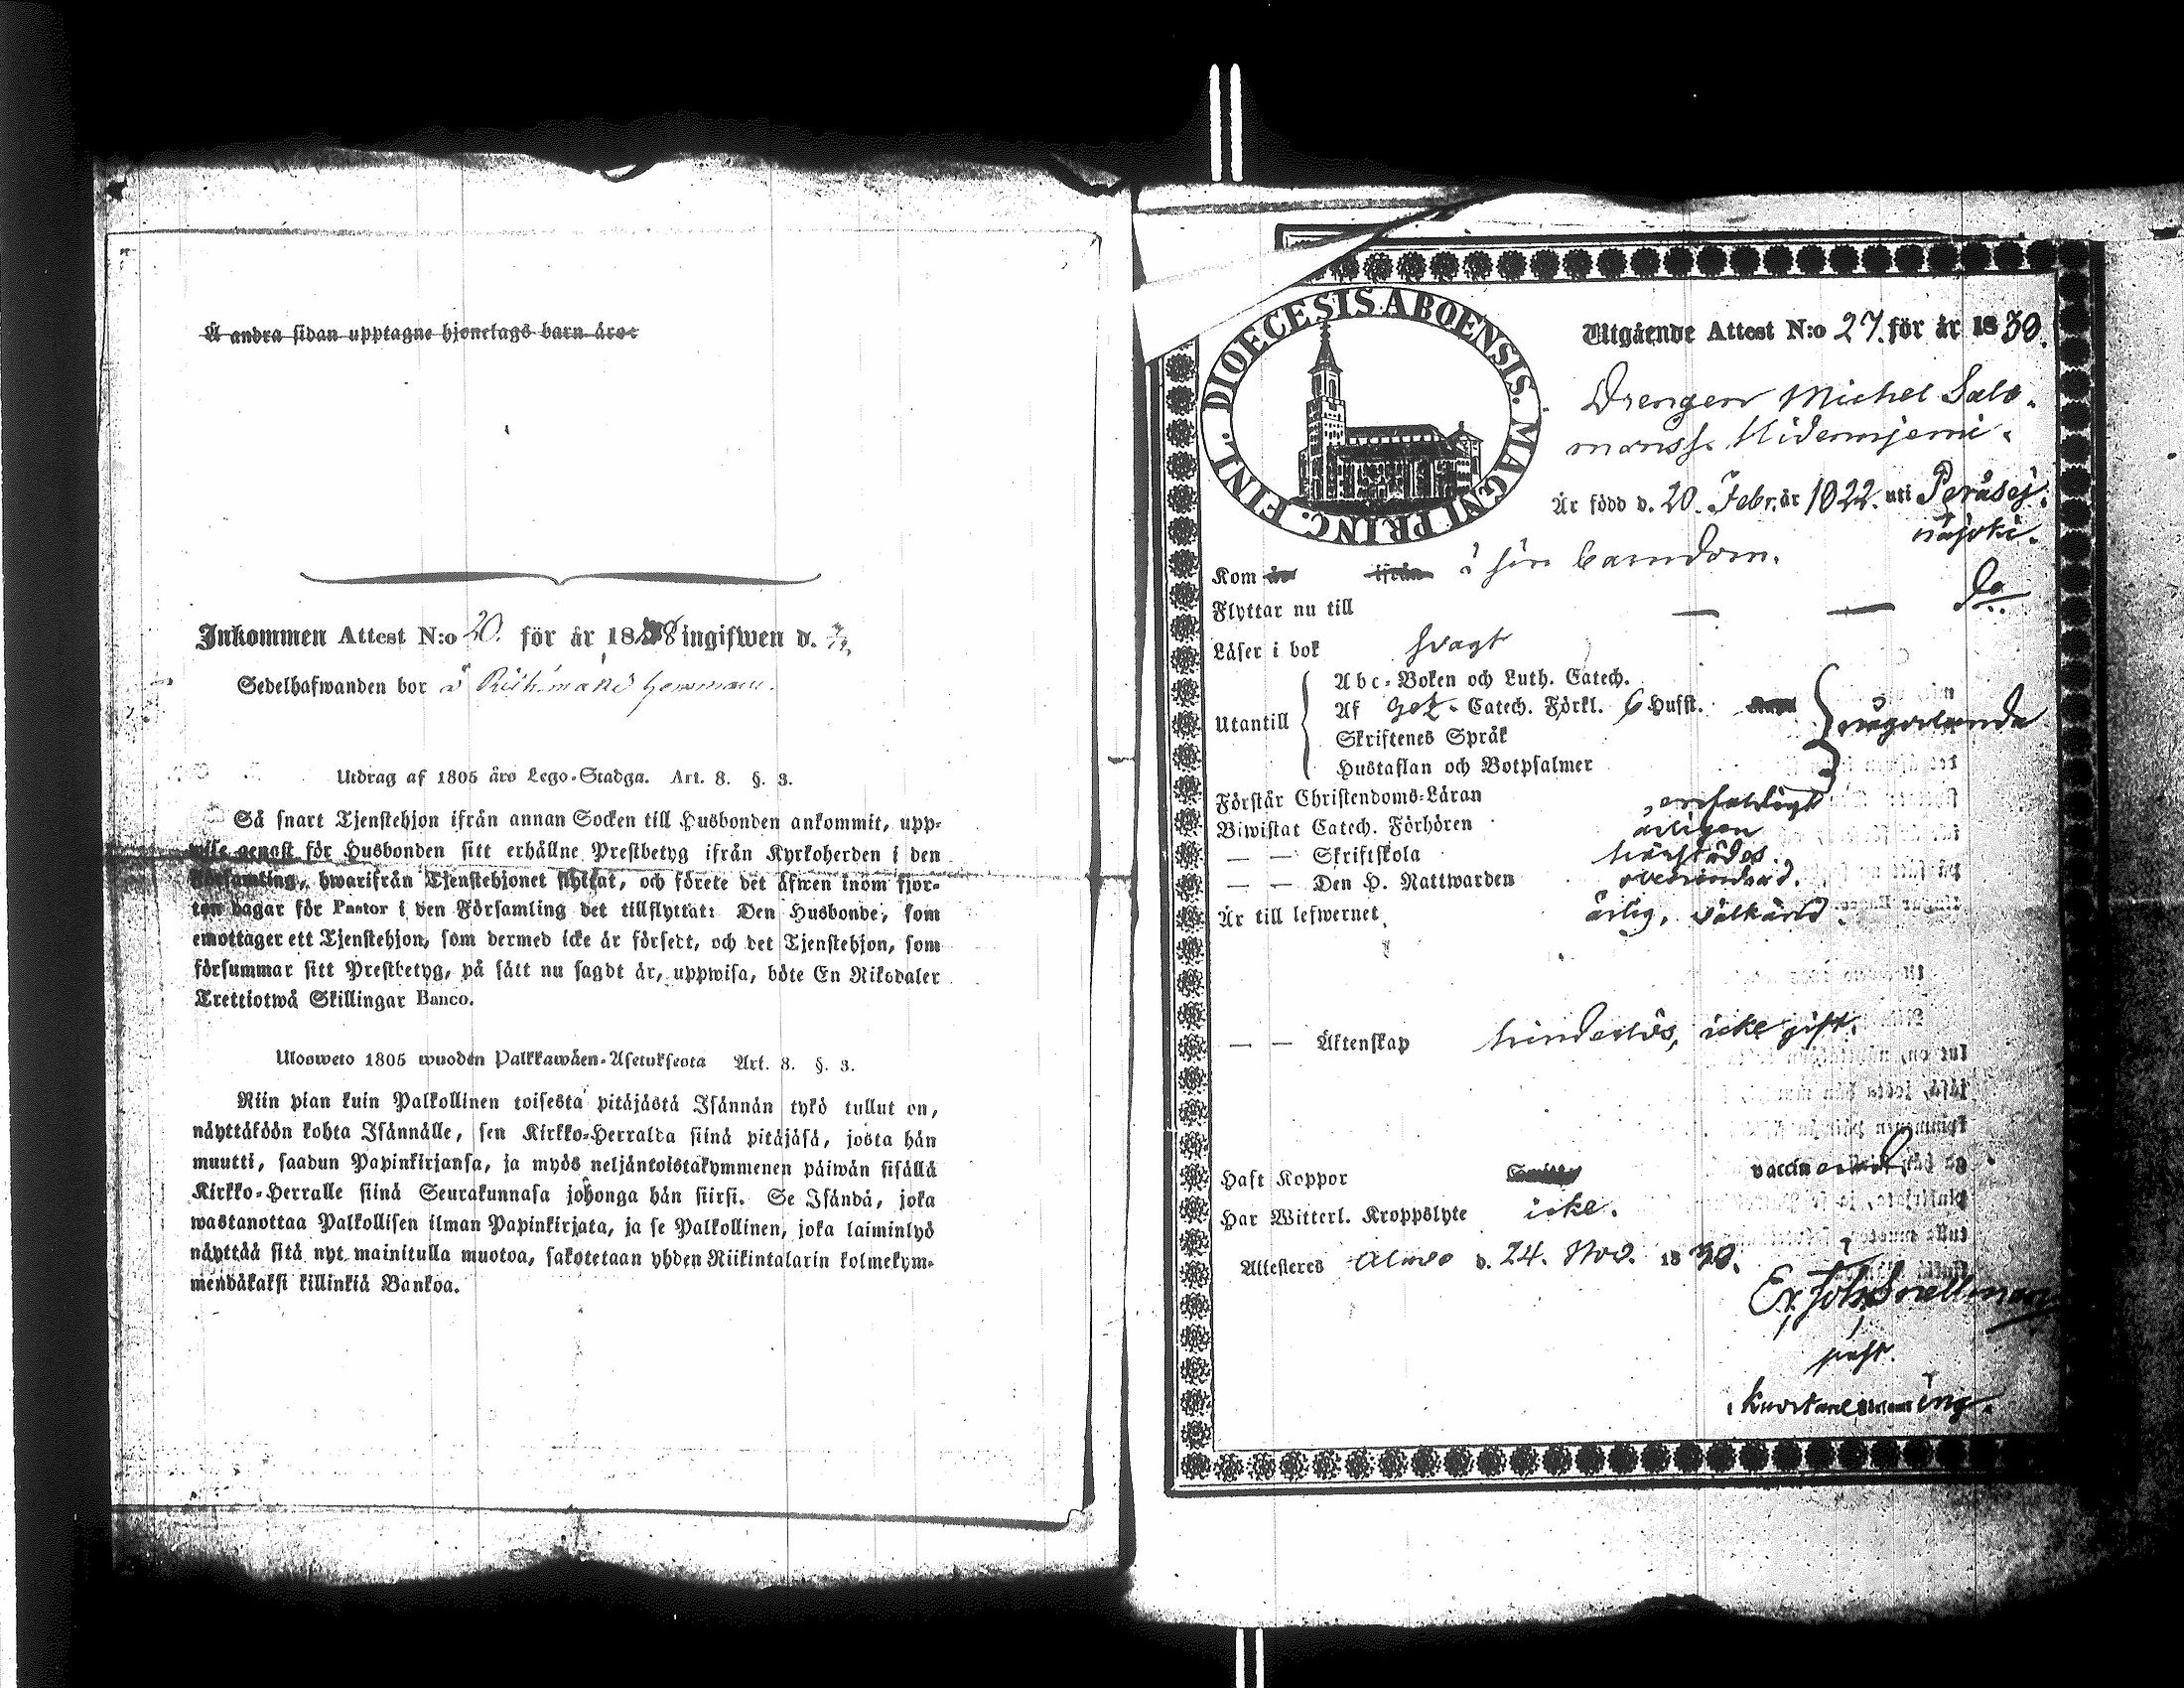 Å andra sidan upptagne hjonelags barn äro:
Inkommen Attest N:o 20. för år 18 8 ingifwen d.
Sedelhafwanden bor å
Utdrag af 1805 års Lego-Stadga. Art. 8. §. 3.
Så snart Tjenstehjon ifrån annan Socken till Husbonden ankommit, upp-
wise genast för Husbonden sitt erhållne Prestbetyg ifrån Kyrkoherden i den
Församling, hwarifrån Tjenstehjonet flyttat, och förete det äfwen inom fjor-
ton dagar för Pastor i den Församling det tillflyttat: Den Husbonde, som
emottager ett Tjenstehjon, som dermed icke är försedt, och det Tjenstehjon, som
försummar sitt Prestbetyg, på sätt nu sagdt är, uppwisa, böte En Riksdaler
Trettiotwå Skillingar Banco.
Ulosweto 1805 wuoden Palkkawäen-Asetuksesta Art. 8. §. 3.
Niin pian kuin Palkollinen toisesta pitäjästä Isännän tykö tullut on,
näyttäköön kohta Isännälle, sen Kirkko-Herralda siinä pitäjäsä, josta hän
muutti, saadun Papinkirjansa, ja myös neljäntoistakymmenen päiwän sisällä
Kirkko-Herralle siinä Seurakunnasa johonga hän siirsi. Se Isändä, joka
wastanottaa Palkollisen ilman Papinkirjata, ja se Palkollinen, joka laiminlyö
näyttää sitä nyt mainitulla muotoa, sakotetaan yhden Riikintalarin kolmekym-
mendäkaksi killinkiä Bankoa.
DIOECESIS ABOENSIS. MAGNI PRINC. FINL.
Utgående Attest N:o 27. för år 1830.
Drengen Michel Salo-
monss.
Är född d. 20. Febr. år 1822. uti Peräsej-
näjoki.
Kom år ifrån i sin barndom.
Flyttar nu till — —
Läser i bok svagt
Abc-Boken och Luth. Catech.
Utantill Af Catech. Förkl. 6 Hufst. någorlunda
Skriftenes Språk
Hustaflan och Botpsalmer
Förstår Christendoms-Läran enfaldigt
Biwistat Catech. Förhören årligen
— — Skriftskola härstädes.
— — Den H. Nattwarden
Är till lefwernet ärlig, välkänd.
— — Äktenskap hinderlös, icke gift.
Haft Koppor vaccinerad
Har Witterl. Kroppslyte icke.
Attesteras Alavo d. 24. Nov. 18
Er. Joh. Snellman
past.